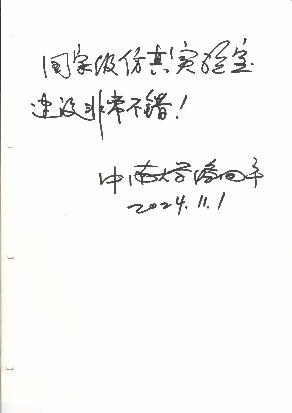 国家级仿真实验室
建设非常不错！
中南大学
2024.11.1